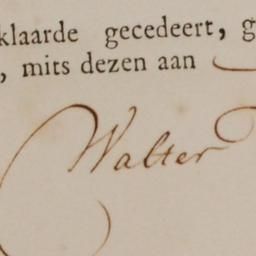 klaarde gecedeert, g
, mits dezen aan
Walter